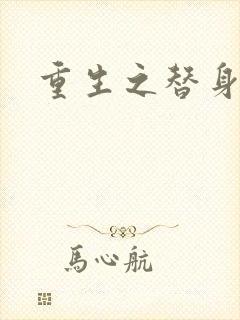 重生之替身
馬心航